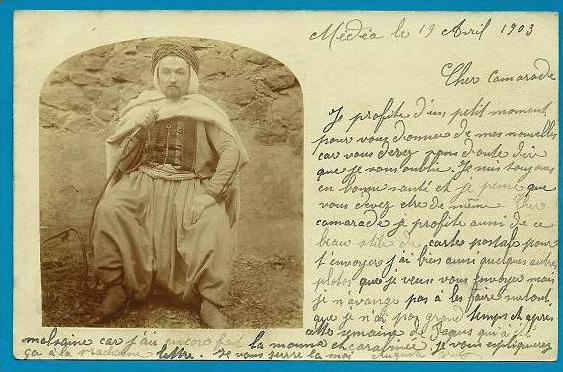 Médéa le 19 Avril 1903
Cher Camarade
Je profite d'un petit moment
pour vous donner de mes nouvelles
car vous devez sans doute dire
que je vous oublie. Je suis toujours
en bonne santé et je pense que
vous devez etre de même. Cher
camarade je profite aussi de ce
beau stile de cartes postale pour
t'envoyer j'ai bien aussi quelques autres
photos que je veux vous envoyer mais
je n'avance pas à les faire surtout
que je n'ai pas grand temps et après
cette semaine de
car j'ai encore fait la mouna et je vous expliquerez
ça à la prochaine lettre. Je vous serre la main Auguste